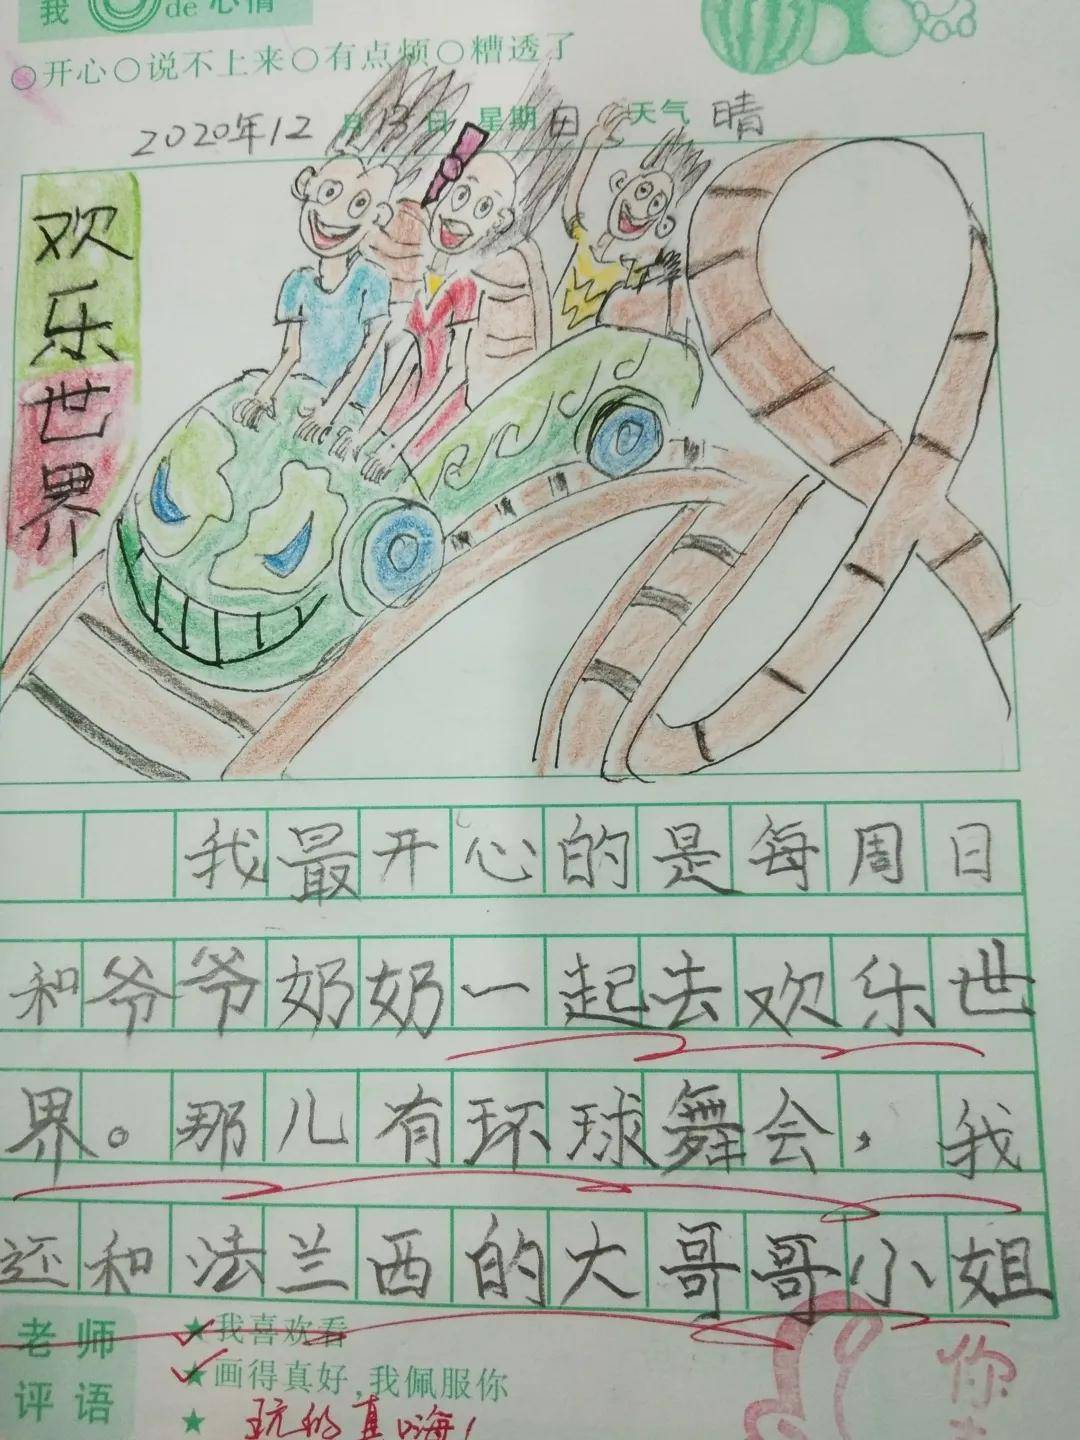 我 de 心情
开心 说不上来 有点烦 糟透了
2020年12月13日 星期日 天气 晴
欢乐世界
我最开心的是每周日
和爷爷奶奶一起去欢乐世
界。那儿有环球舞会，我
还和法兰西的大哥哥小姐
老师评语
★我喜欢看
★画得真好,我佩服你
★玩的真嗨!
你